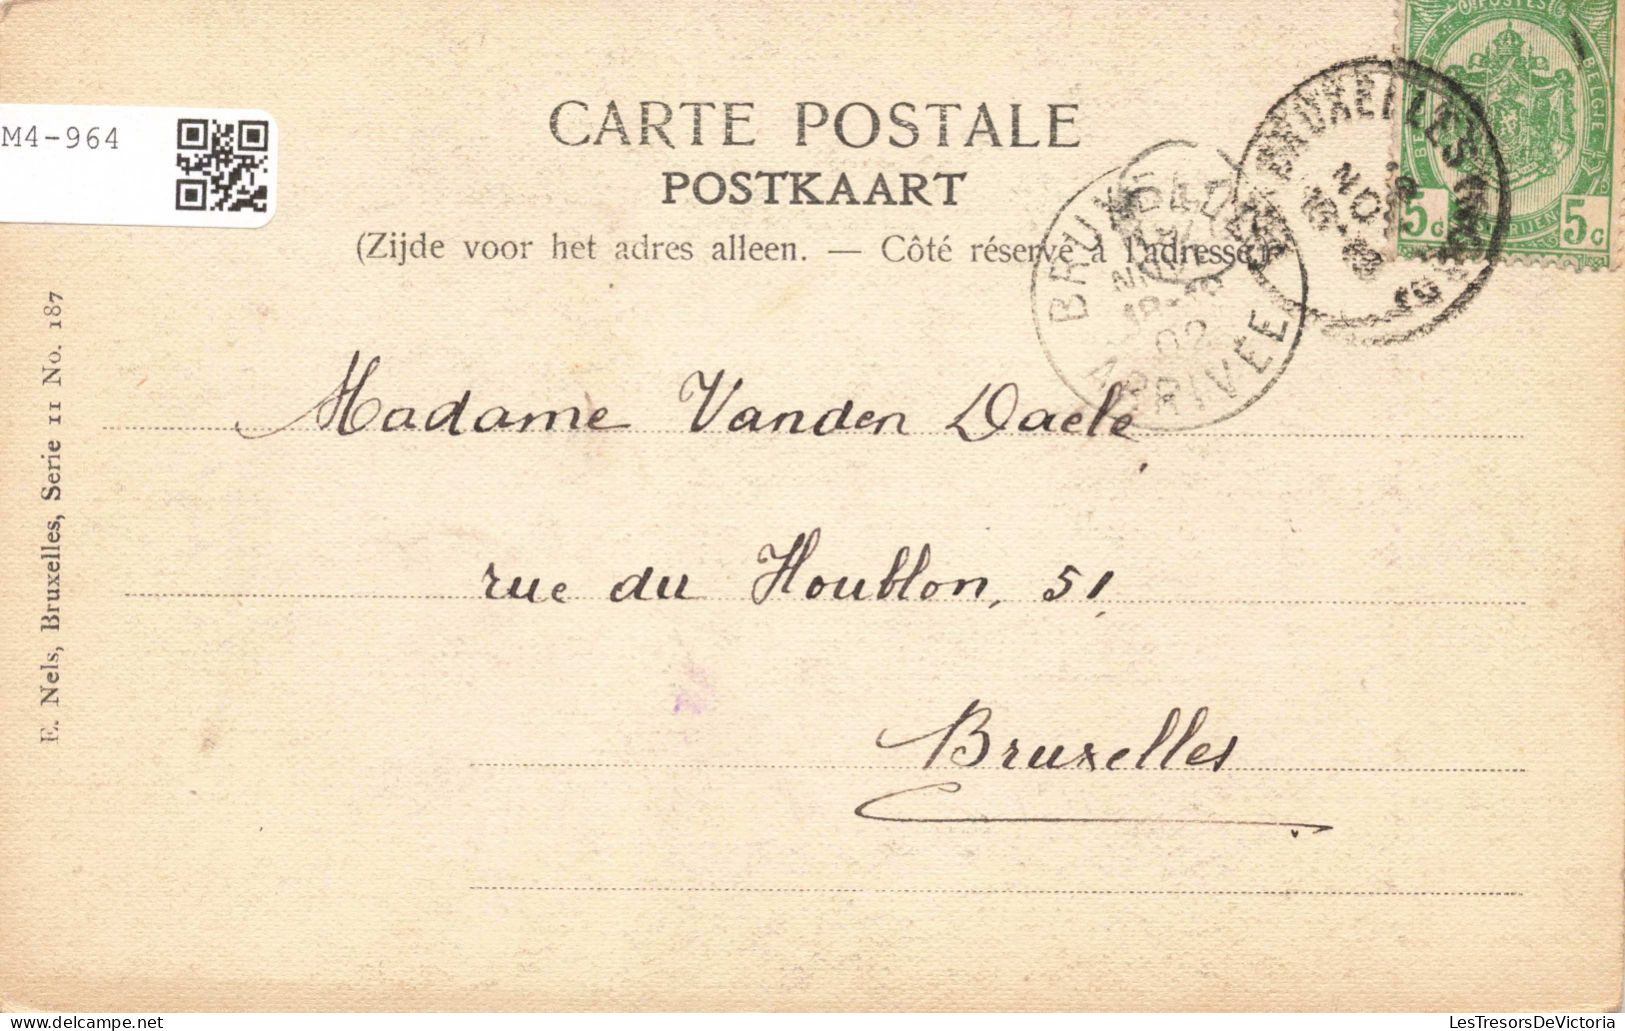 M4-964
CARTE POSTALE
POSTKAART
(Zijde voor het adres alleen. — Côté réservé à l'adresse.)
POSTES
BELGIE
5c 5c
BRUXELLES
NOV
BRUXELLES
NOV
18-19
02
ARRIVEE
Madame Vanden Daele
rue du Houblon, 51,
Bruxelles
E. Nels, Bruxelles, Serie 11 No. 187
delcampe.net
LesTresorsDeVictoria